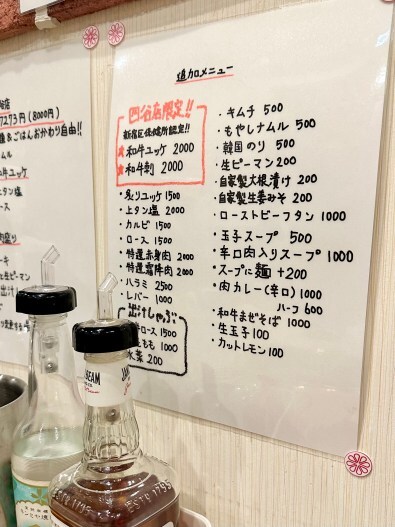 7273円(8000円)
&ごはんおかわり自由!!
追加メニュー
四谷店限定!!
新宿区保健所認定!!
★和牛ユッケ 2000
★和牛刺 2000
・炙りユッケ 1500
・上タン塩 2000
・カルビ 1500
・ロース 1500
・特選赤身肉 2000
・特選霜降肉 2000
・ハラミ 2500
・レバー 1000
出汁しゃぶ
ロース 1500
もも 1000
水菜 200
・キムチ 500
・もやしナムル 500
・韓国のり 500
・生ピーマン 200
・自家製大根漬け 200
・自家製生姜みそ 200
・ローストビーフタン 1000
・玉子スープ 500
・辛口肉入りスープ 1000
・スープに麺 +200
・肉カレー(辛口) 1000
ハーフ 600
・和牛まぜそば 1000
・生玉子 100
・カットレモン 100
EST 1795
EST 1795